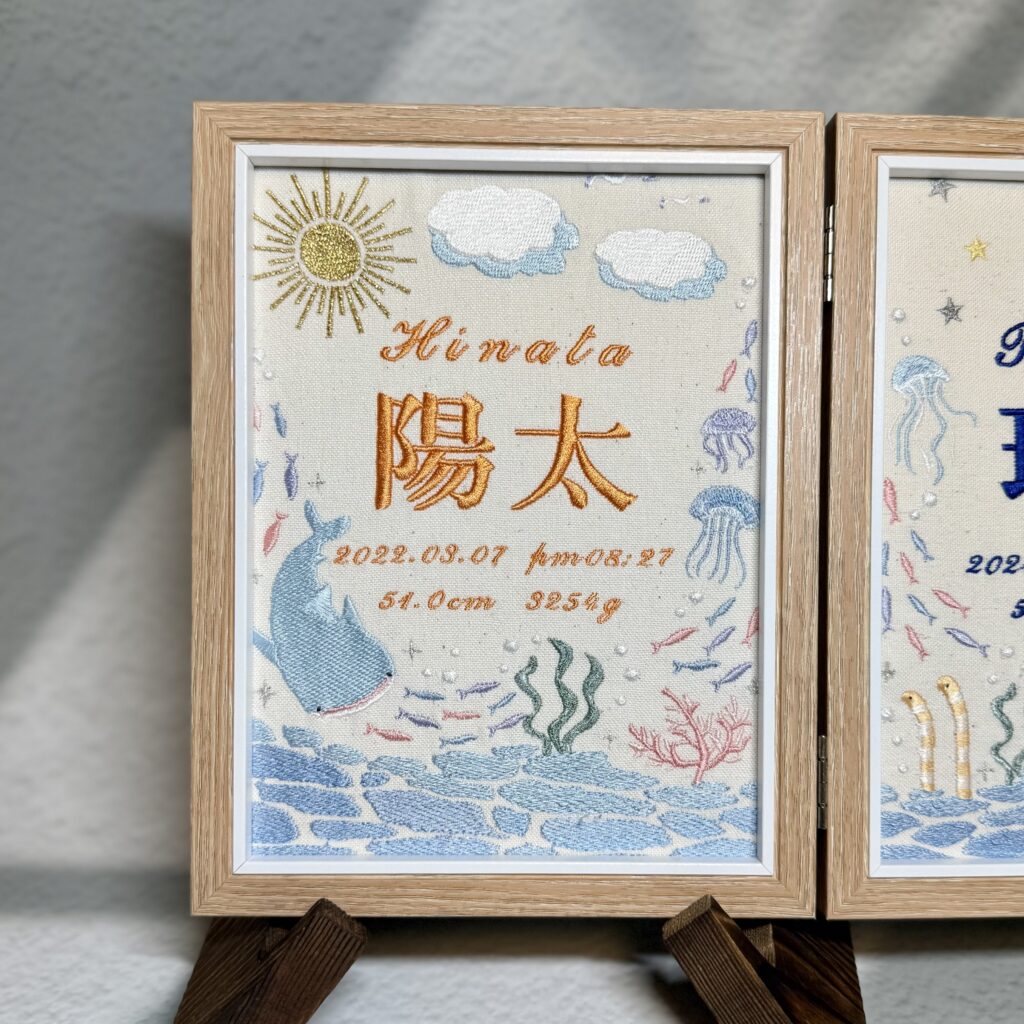 Hinata
陽太
2022.03.07 pm08:27
51.0cm 3254g
202
5